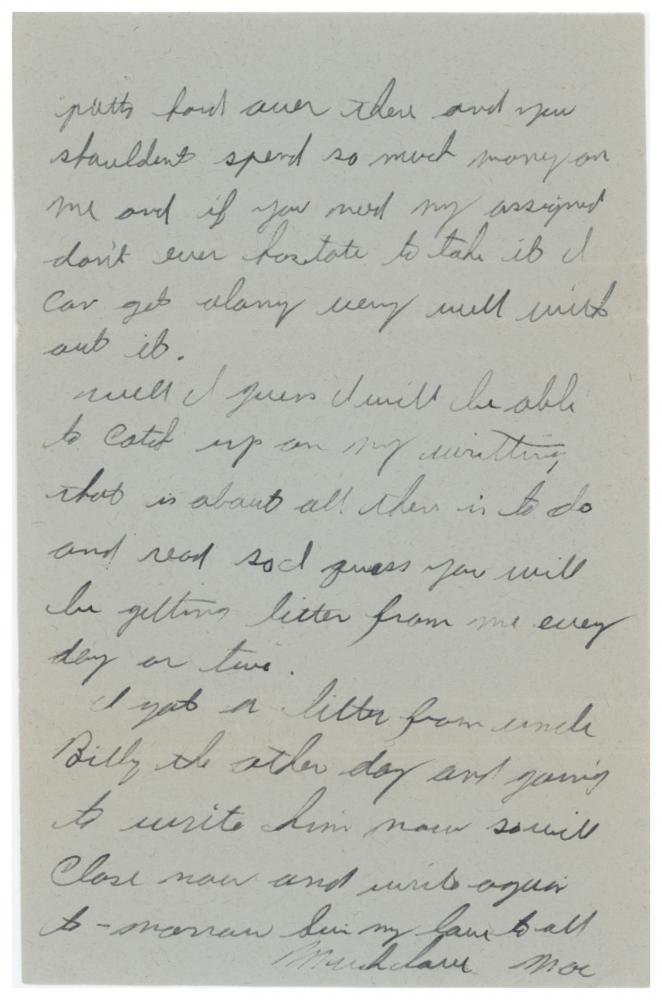 pretty hard over there and you
shouldent spend so much money on
me and if you need my assigned
don't ever hesitate to take it I
can get along very well with
out it.
well I guess I will be able
to catch up on my writting
that is about all ther is to do
and read so I guess you will
be getting letter from me every
day or two.
I got a letter from uncle
Billy the other day and going
to write him now so will
Close now and write again
to-morrow Giv my love to all
Much love Moe